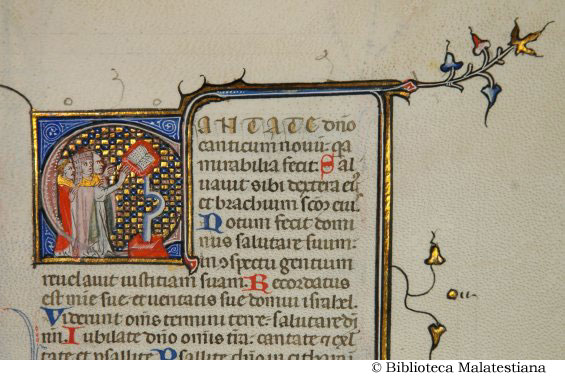 CANTATE dño
canticum nouu: qa
mirabilia fecit. Sal
uauit sibi dextera ei⁹
et brachium scm eiu.
Notum fecit domi
nus salutare suum:
in ↄspectu gentium
reuelauit iustitiam suam. Recordatus
est mie sue: et ueritatis sue domui israhel.
Viderunt oms termini terre: salutare di
nri. Iubilate dño omis tra: cantate ⁊ exl
tate et psallite. Psallite dño in cithara
© Biblioteca Malatestiana